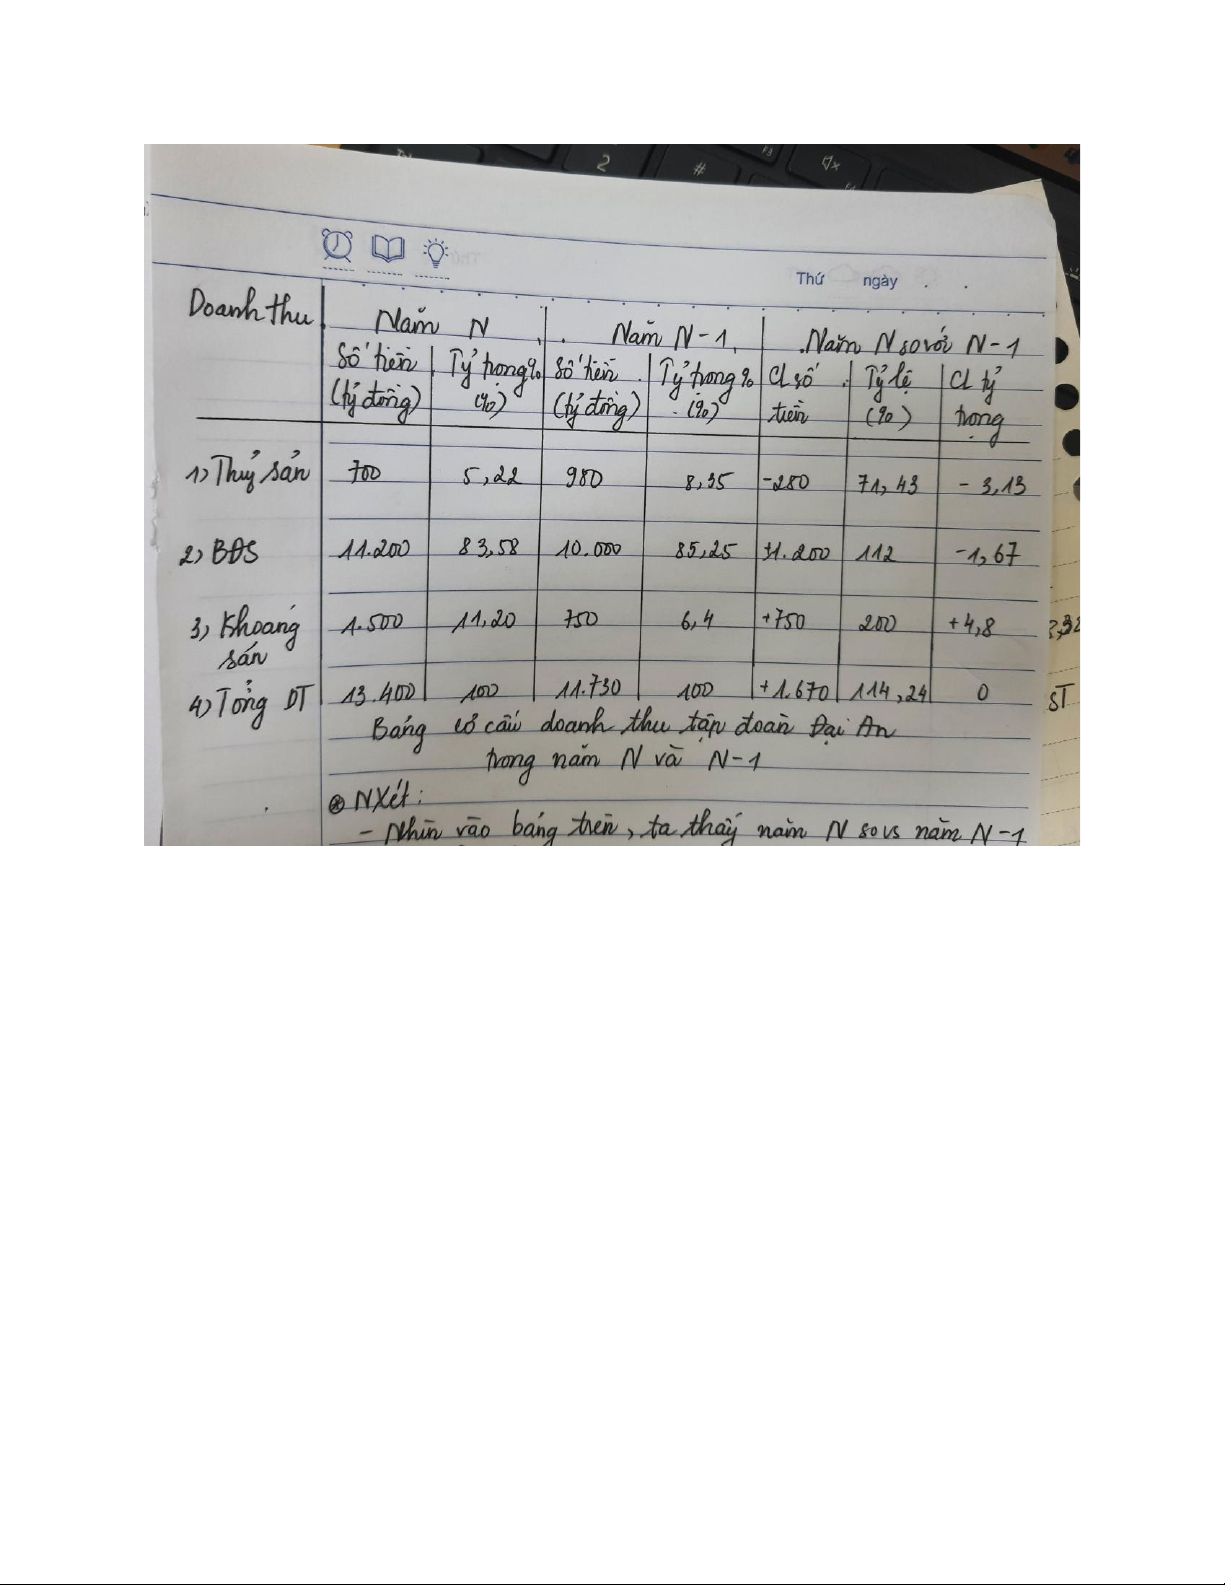 2 # F3
Thứ ngày
Doanh thu Năm N Năm N-1 Năm N so với N-1
Số tiền Tỷ trọng% Số tiền Tỷ trọng % CL số Tỷ lệ CL tỷ
(tỷ đồng) (%) (tỷ đồng) (%) tiền (%) trọng
1) Thuỷ sản 700 5,22 980 8,35 -280 71,43 - 3,13
2) BĐS 11.200 83,58 10.000 85,25 +1.200 112 -1,67
3) Khoáng 1.500 11,20 750 6,4 +750 200 +4,8
sản
4) Tổng DT 13.400 100 11.730 100 +1.670 114,24 0 ST
Bảng cơ cấu doanh thu tập đoàn Đại An
trong năm N và N-1
⊛ NXét:
- Nhìn vào bảng trên, ta thấy năm N so vs năm N-1